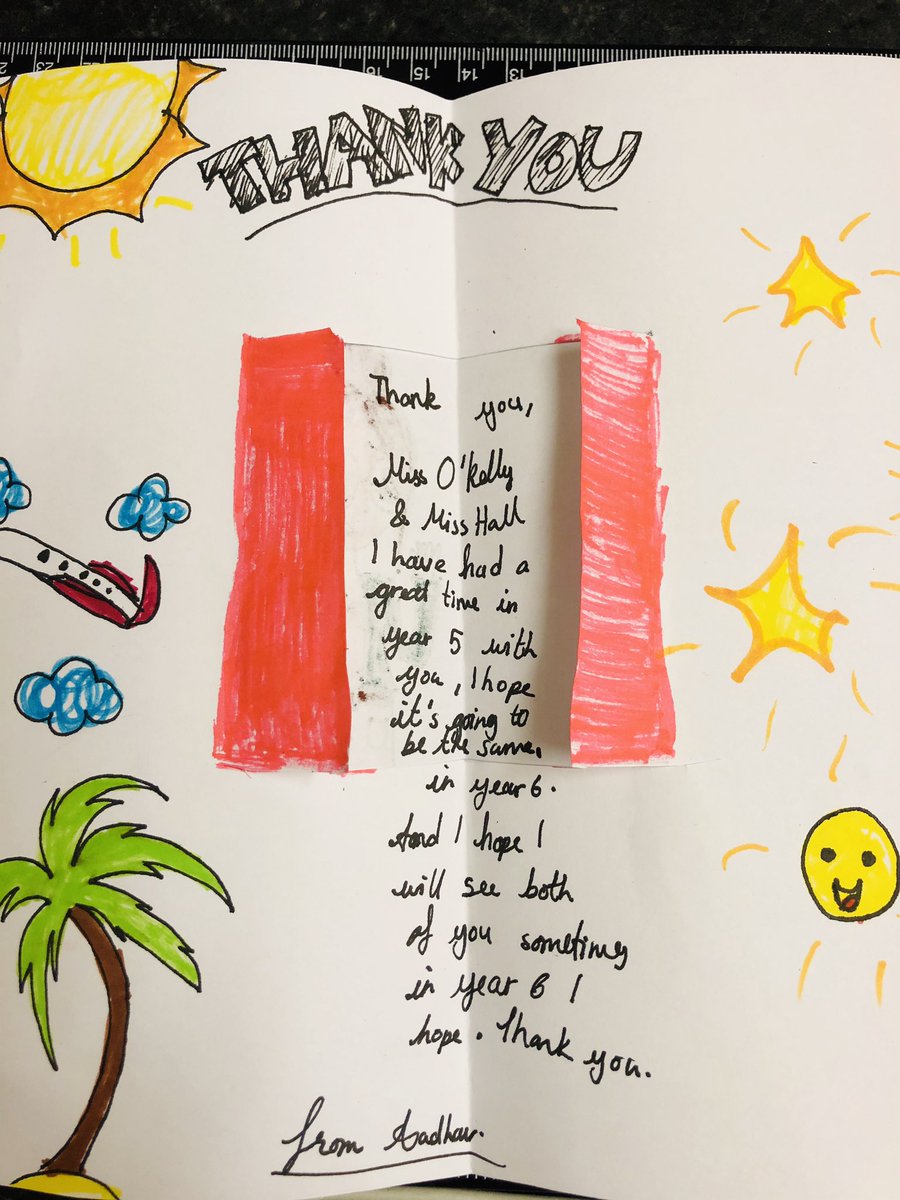 23 16 15 14 13
THANK YOU
Thank you,
Miss O'Kelly
& Miss Hall
I have had a
great time in
year 5 with
you, I hope
it's going to
be the same,
in year 6.
And I hope I
will see both
of you sometimes
in year 6 I
hope. Thank you.
from Aadhav.